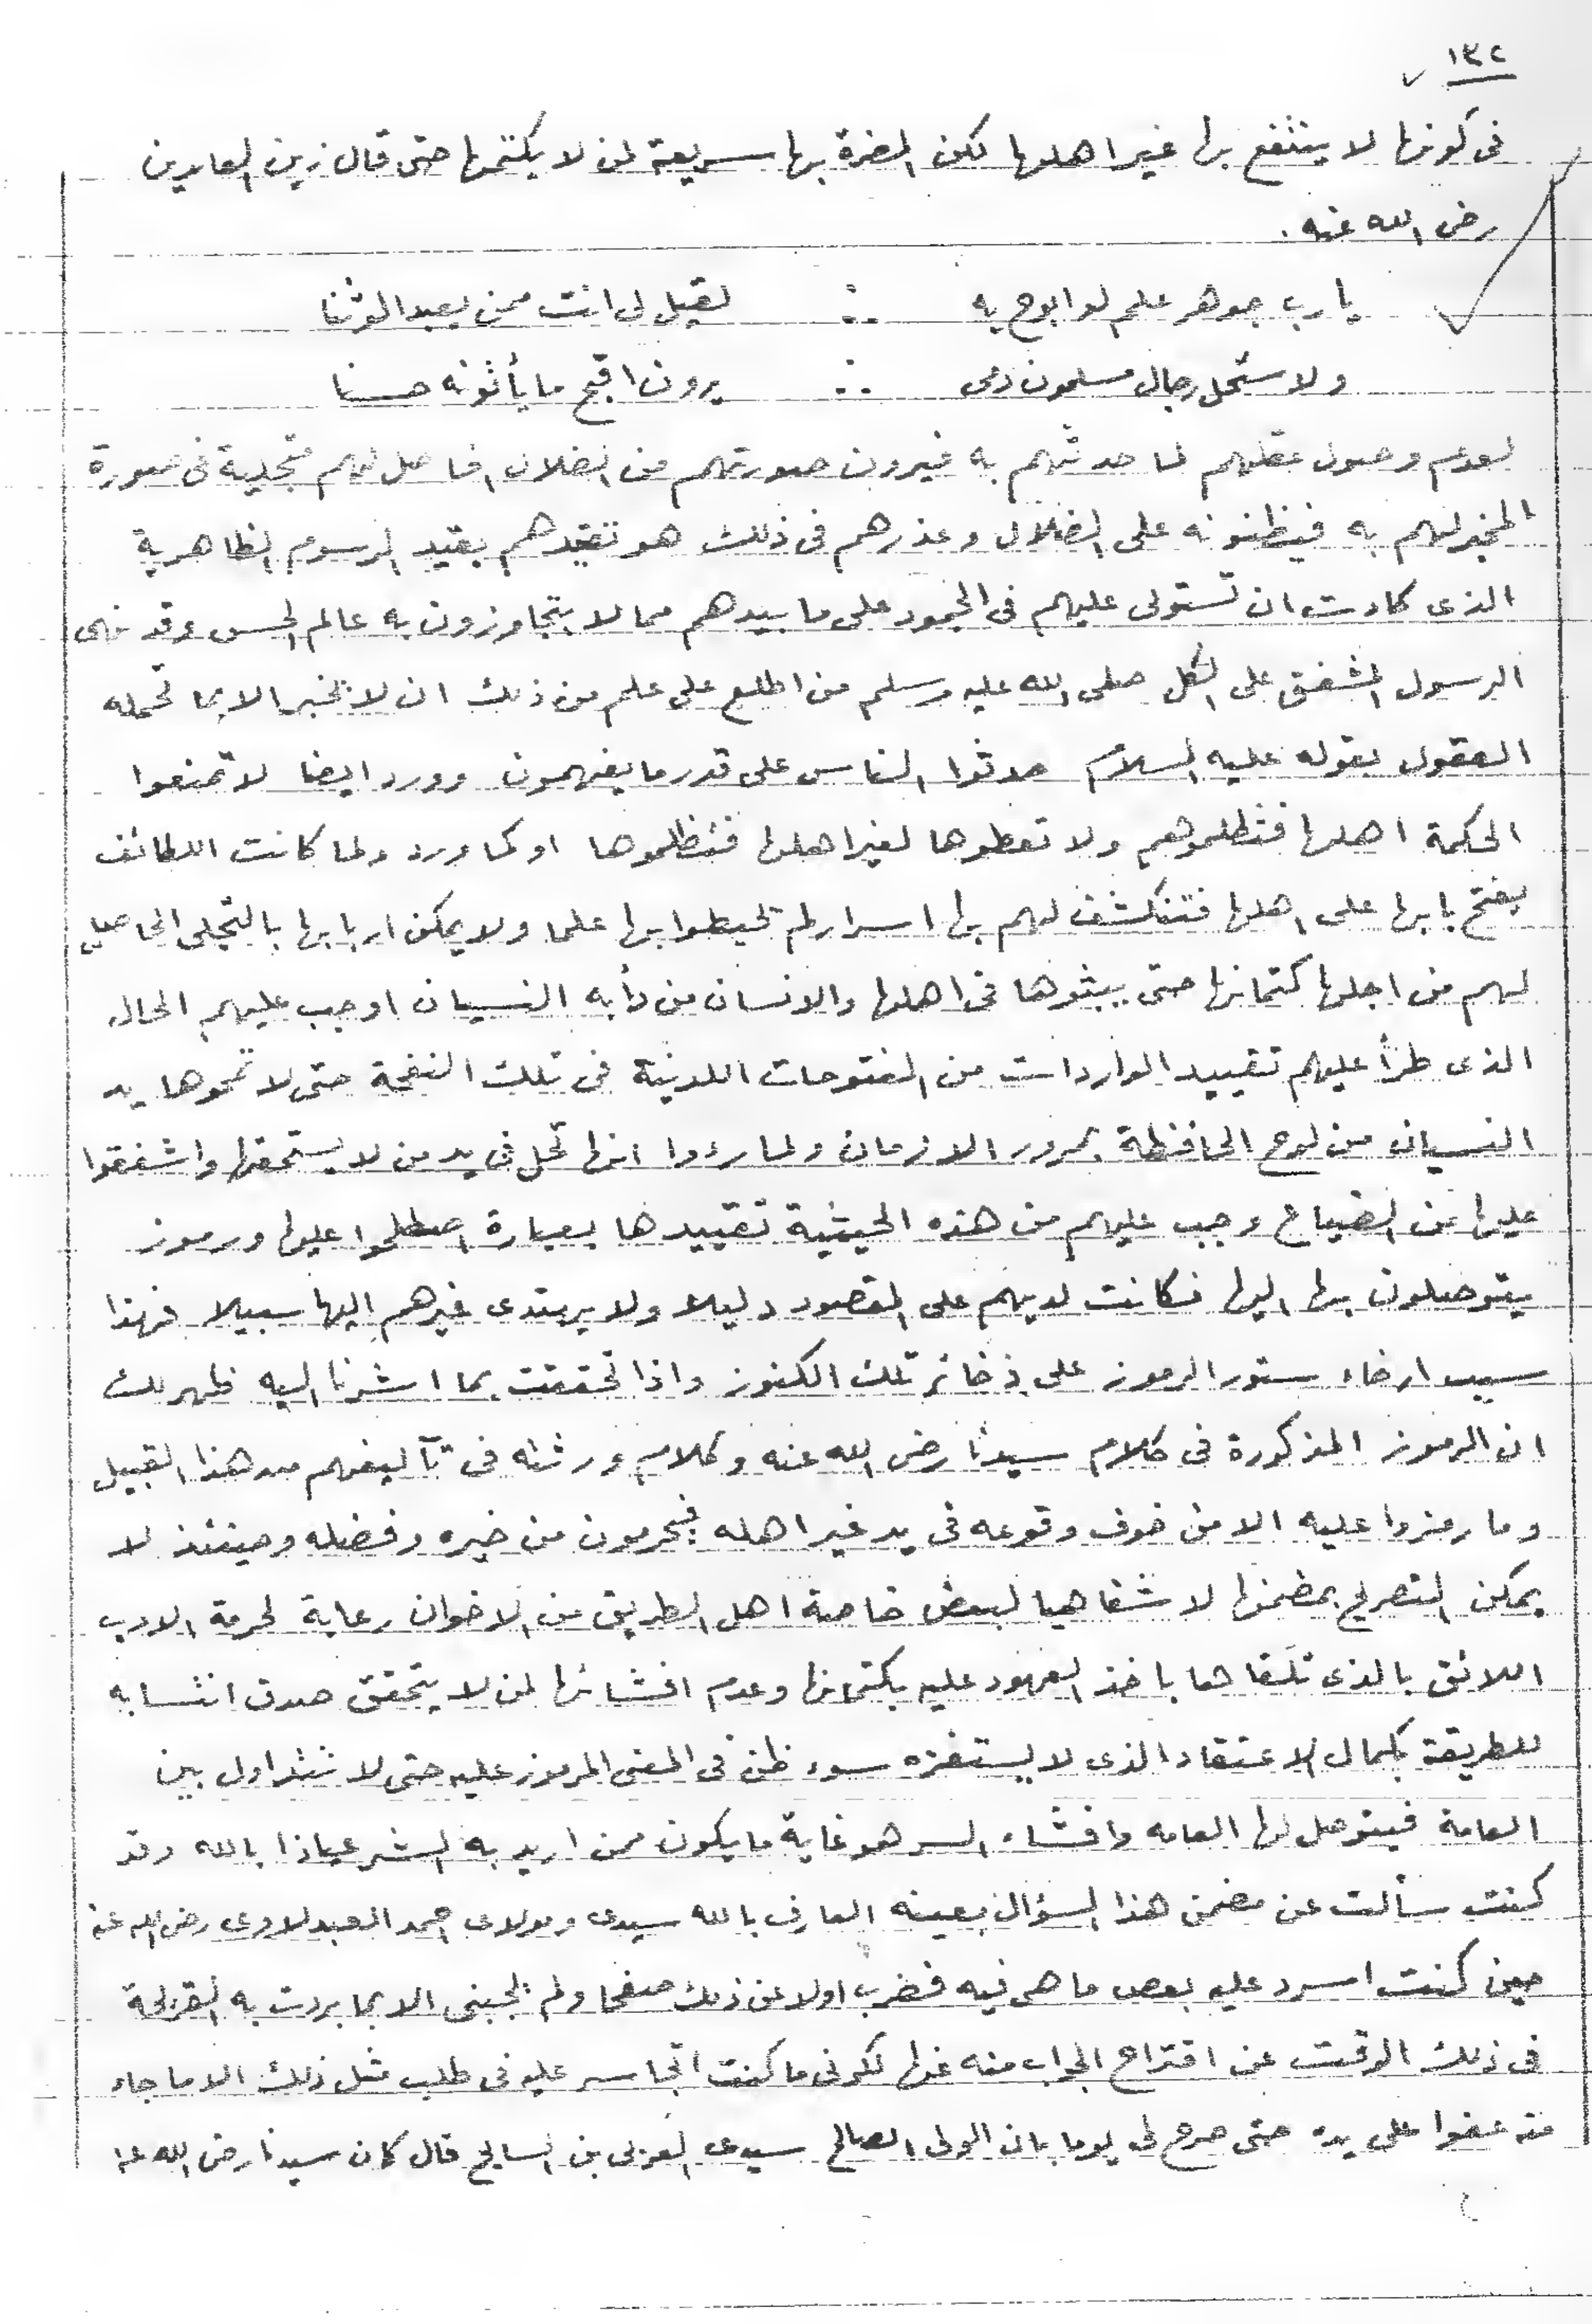 ١٣٢
فى كونها لا ينتفع بها غير اهلها لكن المضرة بها سريعة لمن لا يكتمها حتى قال زين العابدين
رضى الله عنه .
يا رب جوهر علم لو ابوح به ∴ لقيل لى انت ممن يعبد الوثنا
ولا ستحل رجال مسلمون دمى ∴ يرون اقبح ما يأتونه حسنا
لعدم وصول عقلهم لما حدثهم به فيرون صورتهم من الضلال الحاصل لهم متجلية فى صورة
المخبر لهم به فيظنونه على الضلال وعذرهم فى ذلك هو تقيدهم بقيد الرسوم الظاهرية
الذى كادت ان تستولى عليهم فى الجمود على ما بيدهم مما لا يتجاوزون به عالم الحس وقد نهى
الرسول المشفق على الكل صلى الله عليه وسلم من اطلع على علم من ذلك ان لا يخبر الا بما تحمله
العقول بقوله عليه السلام حدثوا الناس على قدر ما يفهمون وورد ايضا لا تمنعوا
الحكمة اهلها فتظلموهم ولا تعطوها لغير اهلها فتظلموها او كما ورد ولما كانت اللطائف
يفتح بابها على اهلها فتنكشف لهم بها اسرار لم تحيطوا بها علما ولا يمكن اربابها بالتجلى الحاصل
لهم من اجلها كتمانها حتى يبثوها فى اهلها والانسان من دأبه النسيان اوجب عليهم الحال
الذى طرأ عليهم تقييد الواردات من الفتوحات اللدنية فى تلك النفحة حتى لا تمحوها يد
النسيان من لوح الحافظة بمرور الازمان ولما رءوا انها تحل فى يد من لا يستحقها واشفقوا
عليها من الضياع وجب عليهم من هذه الحيثية تقييدها بعبارة اصطلحوا عليها ورموز
يتوصلون بها اليها فكانت لديهم على المقصود دليلا ولا يهتدى غيرهم اليها سبيلا فهذا
سبب ارخاء ستور الرموز على ذخائر تلك الكنوز واذا تحققت بما اشرنا اليه ظهر لك
ان الرموز المذكورة فى كلام سيدنا رضى الله عنه وكلام ورثته فى تآليفهم من هذا القبيل
وما رمزوا عليه الا من خوف وقوعه فى يد غير اهله فيحرمون من خيره وفضله وحينئذ لا
يمكن التصريح بمضمنها لا شفاهيا لبعض خاصة اهل الطريق من الاخوان رعاية لحرمة الادب
اللائق بالذى تلقاها باخذ العهود عليه بكتمانها وعدم افشائها لمن لا يتحقق صدق انتسابه
للطريقة بكمال الاعتقاد الذى لا يستفزه سوء ظن فى المعنى المرموز عليه حتى لا تتداول بين
العامة فيتوصل لها العامه وافشاء السر هو غاية ما يكون ممن اريد به الشر عياذا بالله وقد
كنت سألت عن مضمن هذا السؤال بعينه العارف بالله سيدى ومولاى احمد العبدلاوى رضى الله عنه
حين كنت اسرد عليه بعض ما هى فيه فضرب اولا عن ذلك صفحا ولم يجبنى الا بما بردت به القريحة
فى ذلك الوقت عن اقتراح الجواب منه عنها لكونى ما كنت اتجاسر عليه فى طلب مثل ذلك الا ما جاء
منه عفوا على يده حتى صرح لى يوما بان الولى الصالح سيدى العربى بن السايح قال كان سيدنا رضى الله عنه